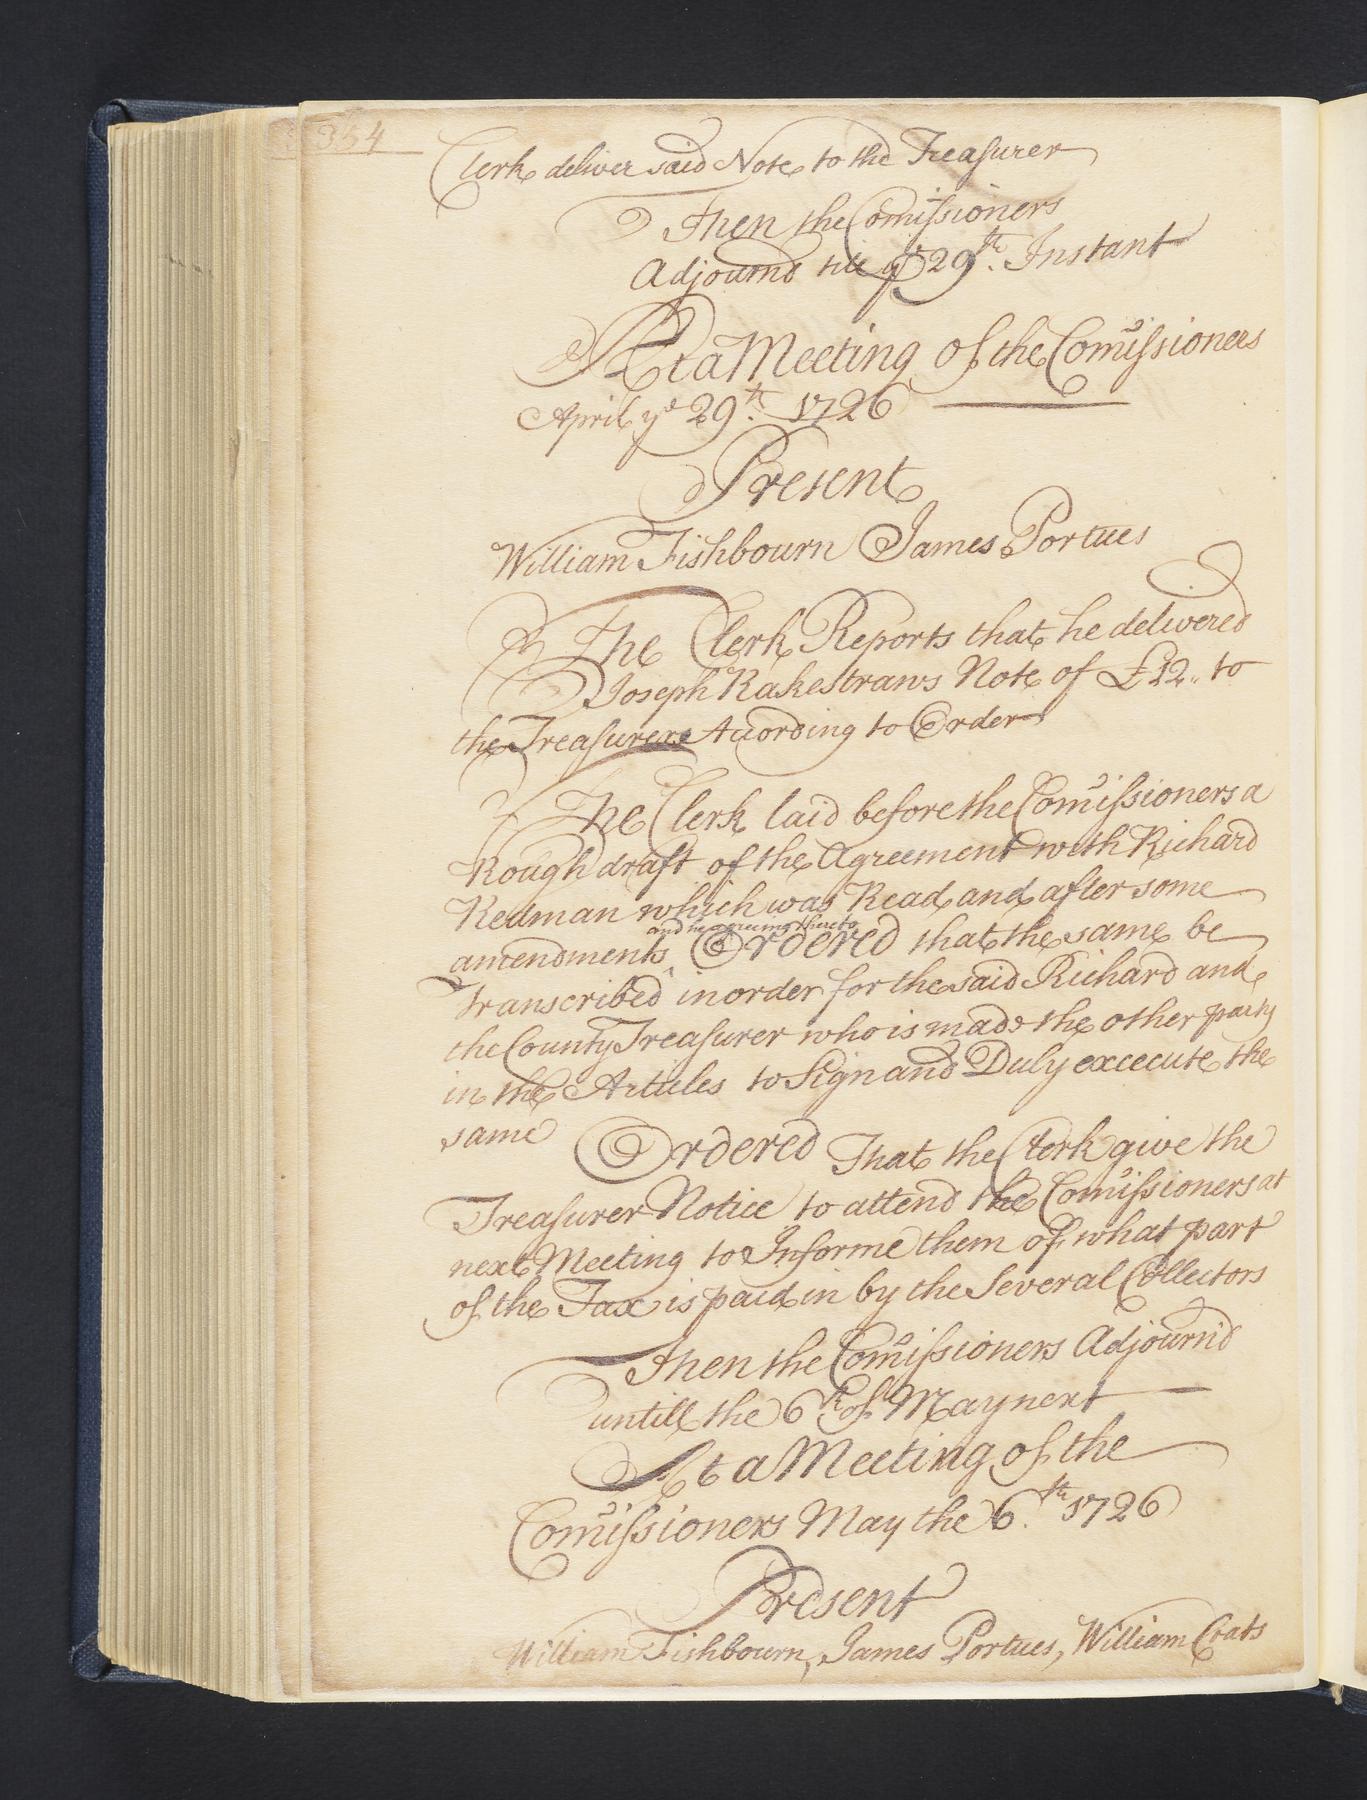 354
Clerk deliver said Note to the Treasurer
Then the Comissioners
Adjournd till ye 29th. Instant
At a Meeting of the Comissioners
April ye 29th. 1726
Present
William Fishbourn James Portues
The Clerk Reports that he delivered
Joseph Rakestraws Note of £12.. to
the Treasurer Acording to Order
The Clerk laid before the Comissioners a
Rough draft of the Agreement with Richard
Redman which was Read and after some
and he agreeing thereto
amendments ^ Ordered that the same be
transcribed in order for the said Richard and
the County Treasurer who is made the other party
in the Articles to Sign and Duly excecute the
same Ordered That the Clerk give the
Treasurer Notice to attend the Comissioners at
next Meeting to Informe them of what part
of the Tax is paid in by the Several Collectors
Then the Comissioners Adjournd
untill the 6th of May next
At a Meeting of the
Comissioners May the 6th. 1726
Present
William Fishbourn, James Portues, William Coats